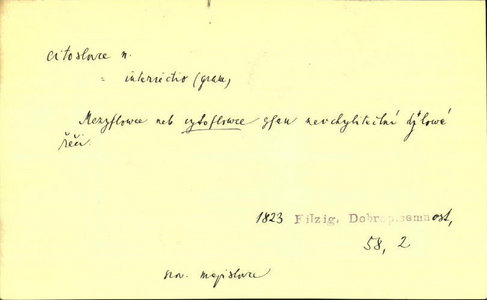 citoslovce n.
= interiectio (gram)
Mezyslowce neb cytoslowce gsau neochylitedlní djlowé
řeči.
1823 Filzig, Dobropisemnost,
58, 2
srv. mezislovce